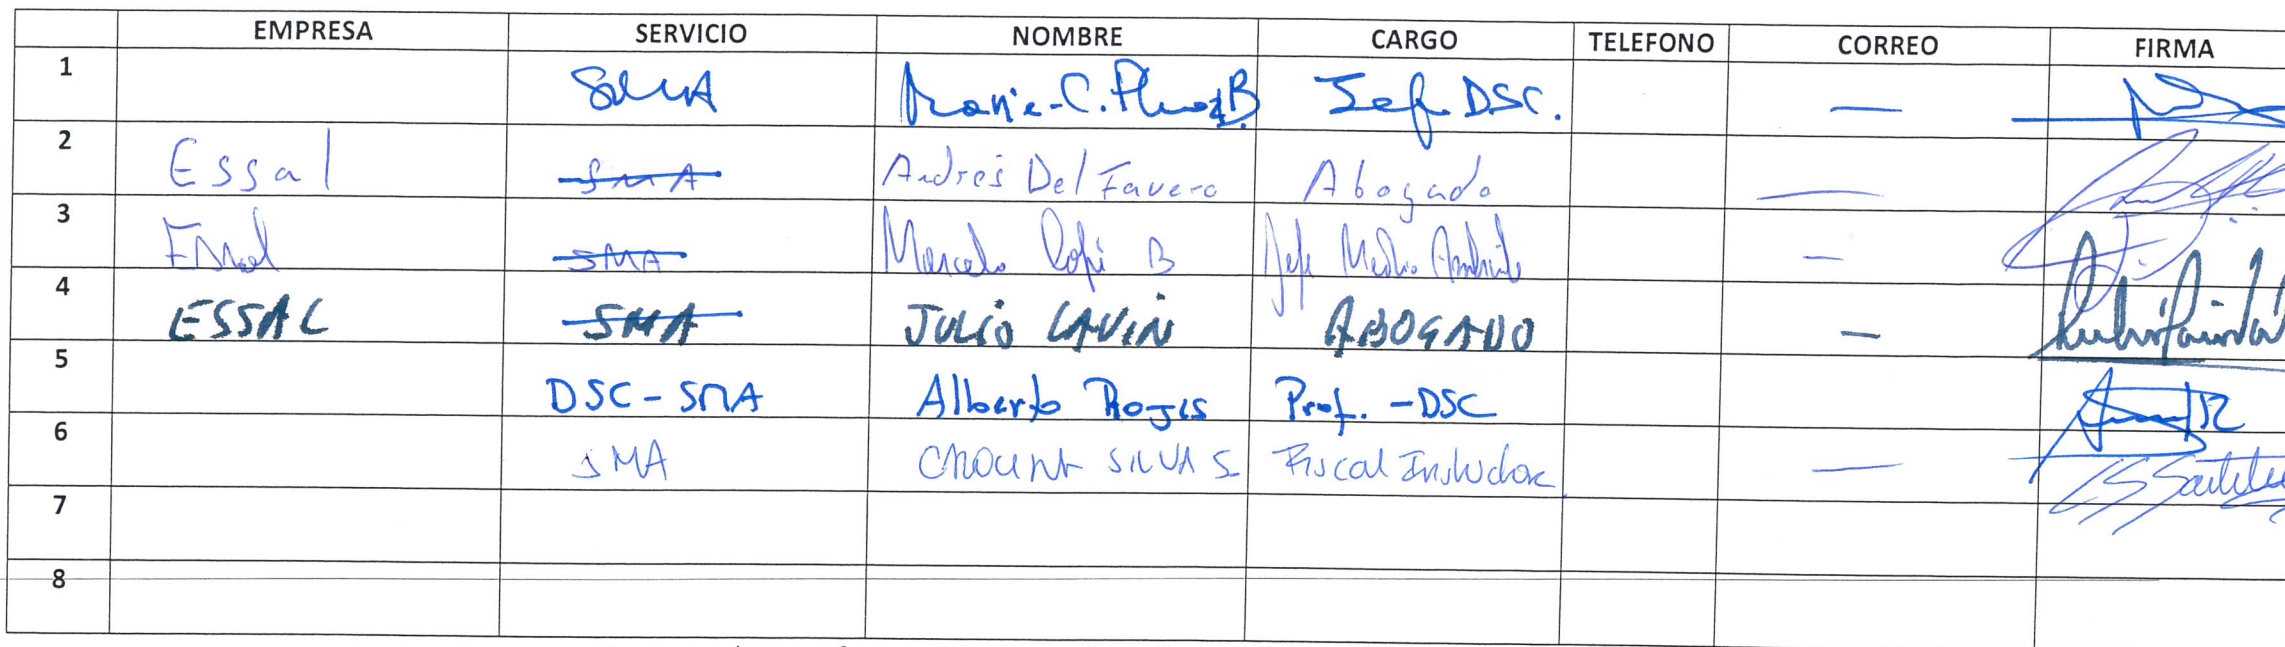 EMPRESA SERVICIO NOMBRE CARGO TELEFONO CORREO FIRMA
1 SMA Marie-C. B. Jefa DSC. —
2 Essal SMA Andrés Del Favero Abogado —
3 Essal SMA Marcelo B Jefe Medio Ambiente —
4 ESSAL SMA JULIO LAVIN ABOGADO —
5 DSC-SMA Alberto Rojas Prof. -DSC
6 SMA SILVA S Fiscal Instructor —
7
8